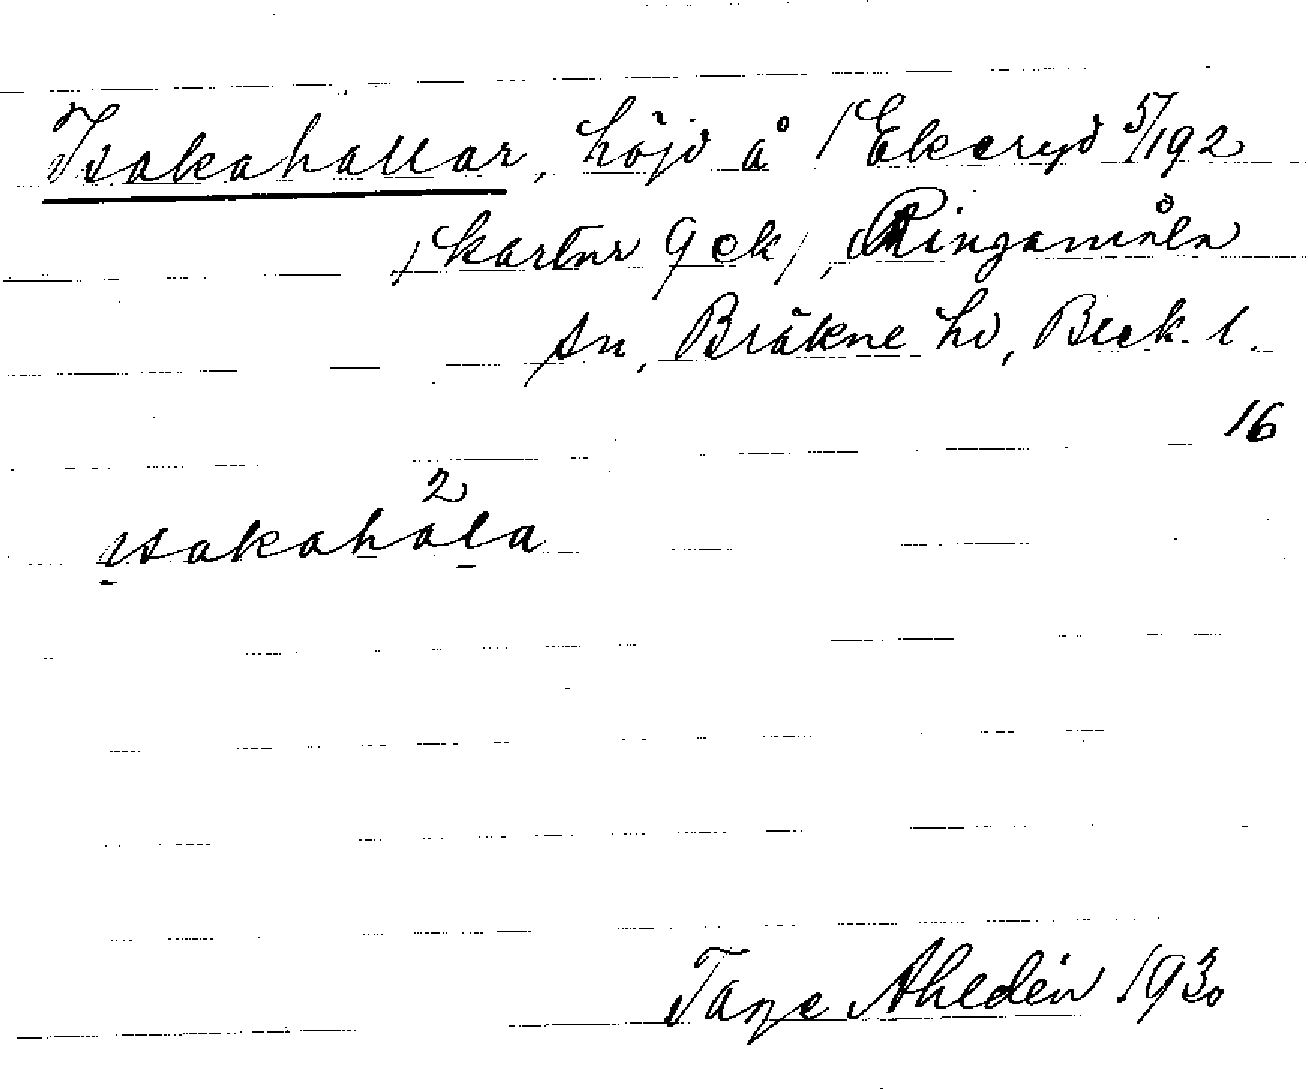 Isakahallar, höjd å /Ekeryd 5/192
/kartnr 9 ek/, Ringamåla
sn, Bräkne hd, Blek. l.
16
2
isakahala
Tage Ahldén 1930